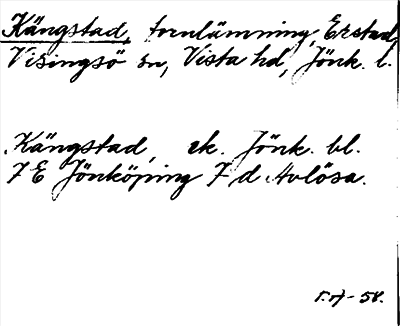 Kängstad, fornlämning, Erstad,
Visingsö sn, Vista hd, Jönk. l.
Kängstad, ek. Jönk. bl.
7 E Jönköping 7 d Avlösa.
58.